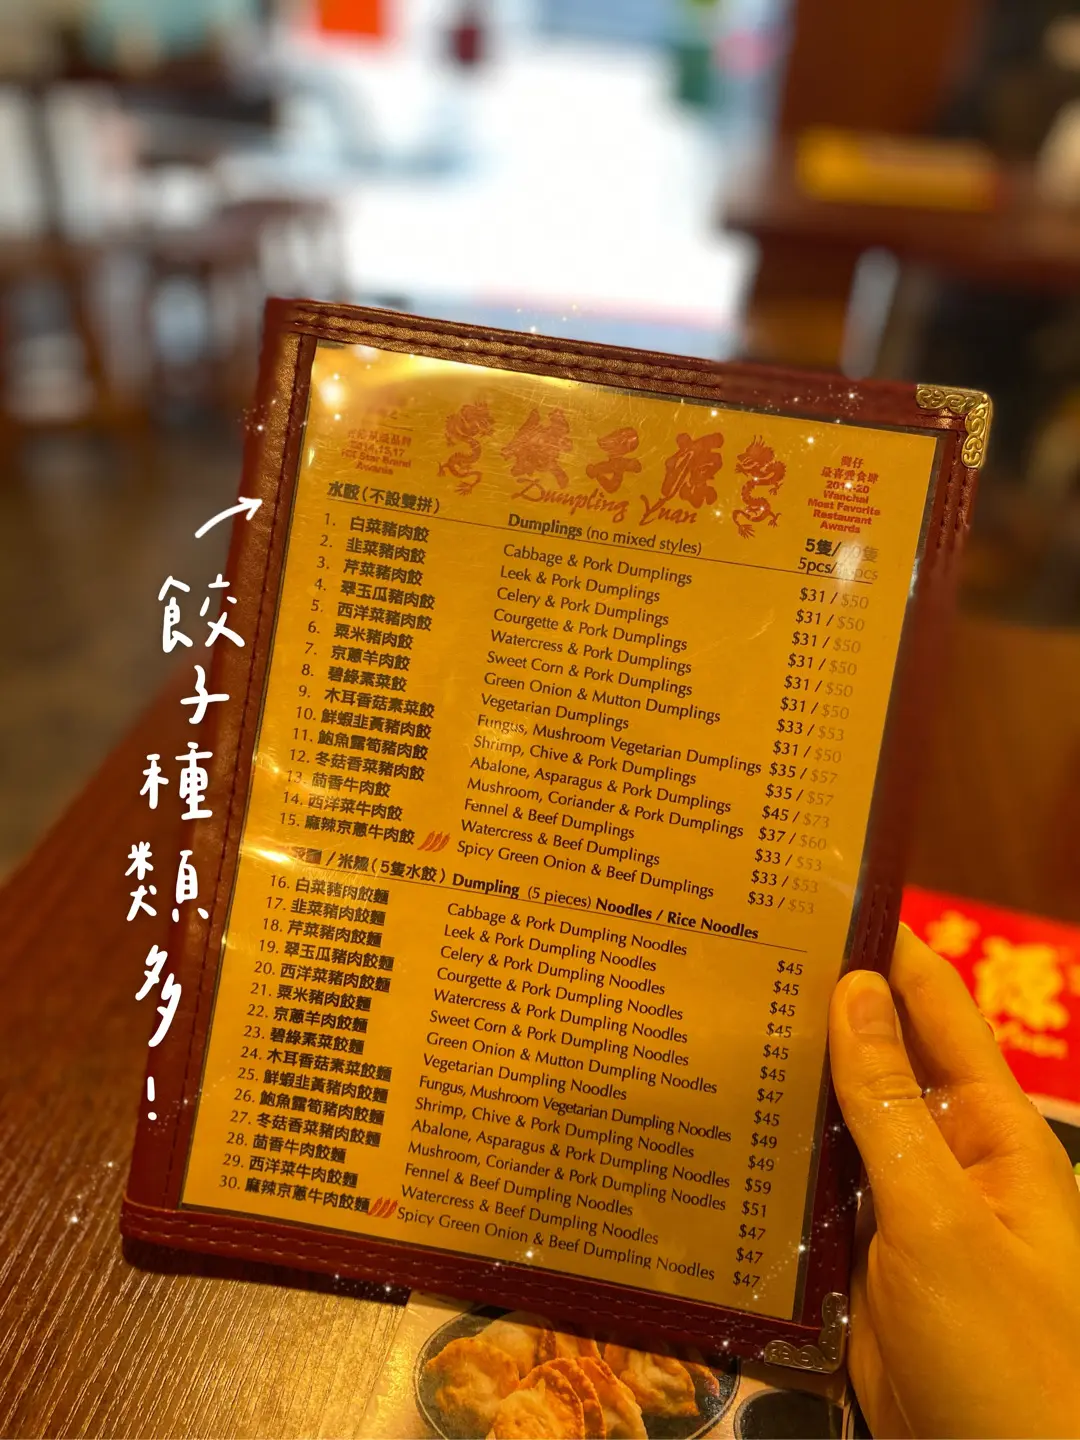 金紫荊品牌
2014,15,17
HK Star Brand
Awards
餃子源
Dumpling Yuan
灣仔
最喜愛食肆
Wanchai
Most Favorite
Restaurant
Awards
水餃(不設雙拼) Dumplings (no mixed styles) 5隻/
5pcs/
1. 白菜豬肉餃 Cabbage & Pork Dumplings $31 / $50
2. 韭菜豬肉餃 Leek & Pork Dumplings $31 / $50
3. 芹菜豬肉餃 Celery & Pork Dumplings $31 / $50
4. 翠玉瓜豬肉餃 Courgette & Pork Dumplings $31 / $50
5. 西洋菜豬肉餃 Watercress & Pork Dumplings $31 / $50
6. 粟米豬肉餃 Sweet Corn & Pork Dumplings $33 / $53
7. 京蔥羊肉餃 Green Onion & Mutton Dumplings $31 / $50
8. 碧綠素菜餃 Vegetarian Dumplings $35 / $57
9. 木耳香菇素菜餃 Fungus, Mushroom Vegetarian Dumplings $35 / $57
10. 鮮蝦韭黃豬肉餃 Shrimp, Chive & Pork Dumplings $45 / $73
11. 鮑魚露筍豬肉餃 Abalone, Asparagus & Pork Dumplings $37 / $60
12. 冬菇香菜豬肉餃 Mushroom, Coriander & Pork Dumplings $33 / $53
13. 茴香牛肉餃 Fennel & Beef Dumplings $33 / $53
14. 西洋菜牛肉餃 Watercress & Beef Dumplings $33 / $53
15. 麻辣京蔥牛肉餃 Spicy Green Onion & Beef Dumplings
麵 / 米線(5隻水餃) Dumpling (5 pieces) Noodles / Rice Noodles
16. 白菜豬肉餃麵 Cabbage & Pork Dumpling Noodles $45
17. 韭菜豬肉餃麵 Leek & Pork Dumpling Noodles $45
18. 芹菜豬肉餃麵 Celery & Pork Dumpling Noodles $45
19. 翠玉瓜豬肉餃麵 Courgette & Pork Dumpling Noodles $45
20. 西洋菜豬肉餃麵 Watercress & Pork Dumpling Noodles $45
21. 粟米豬肉餃麵 Sweet Corn & Pork Dumpling Noodles $45
22. 京蔥羊肉餃麵 Green Onion & Mutton Dumpling Noodles $47
23. 碧綠素菜餃麵 Vegetarian Dumpling Noodles $45
24. 木耳香菇素菜餃麵 Fungus, Mushroom Vegetarian Dumpling Noodles $49
25. 鮮蝦韭黃豬肉餃麵 Shrimp, Chive & Pork Dumpling Noodles $49
26. 鮑魚露筍豬肉餃麵 Abalone, Asparagus & Pork Dumpling Noodles $59
27. 冬菇香菜豬肉餃麵 Mushroom, Coriander & Pork Dumpling Noodles $51
28. 茴香牛肉餃麵 Fennel & Beef Dumpling Noodles $47
29. 西洋菜牛肉餃麵 Watercress & Beef Dumpling Noodles $47
30. 麻辣京蔥牛肉餃麵 Spicy Green Onion & Beef Dumpling Noodles $47
餃子種類多!
源